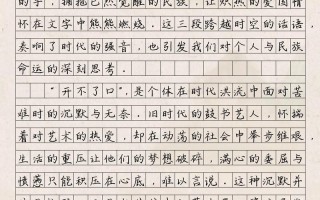 的手，拥抱已然觉醒的民族，让炽热的爱国情
怀在文字中熊熊燃烧。这三段跨越时空的话语，
奏响了时代的强音，也引发我们对个人与民族
命运的深刻思考。
“开不了口”，是个体在时代洪流中面对苦
难时的沉默与无奈。旧时代的鼓书艺人，怀揣
着对艺术的热爱，却在动荡的社会中举步维艰。
生活的重压让他们的梦想破碎，满心的委屈与
愤懑只能积压在心底，难以言说。这种沉默并